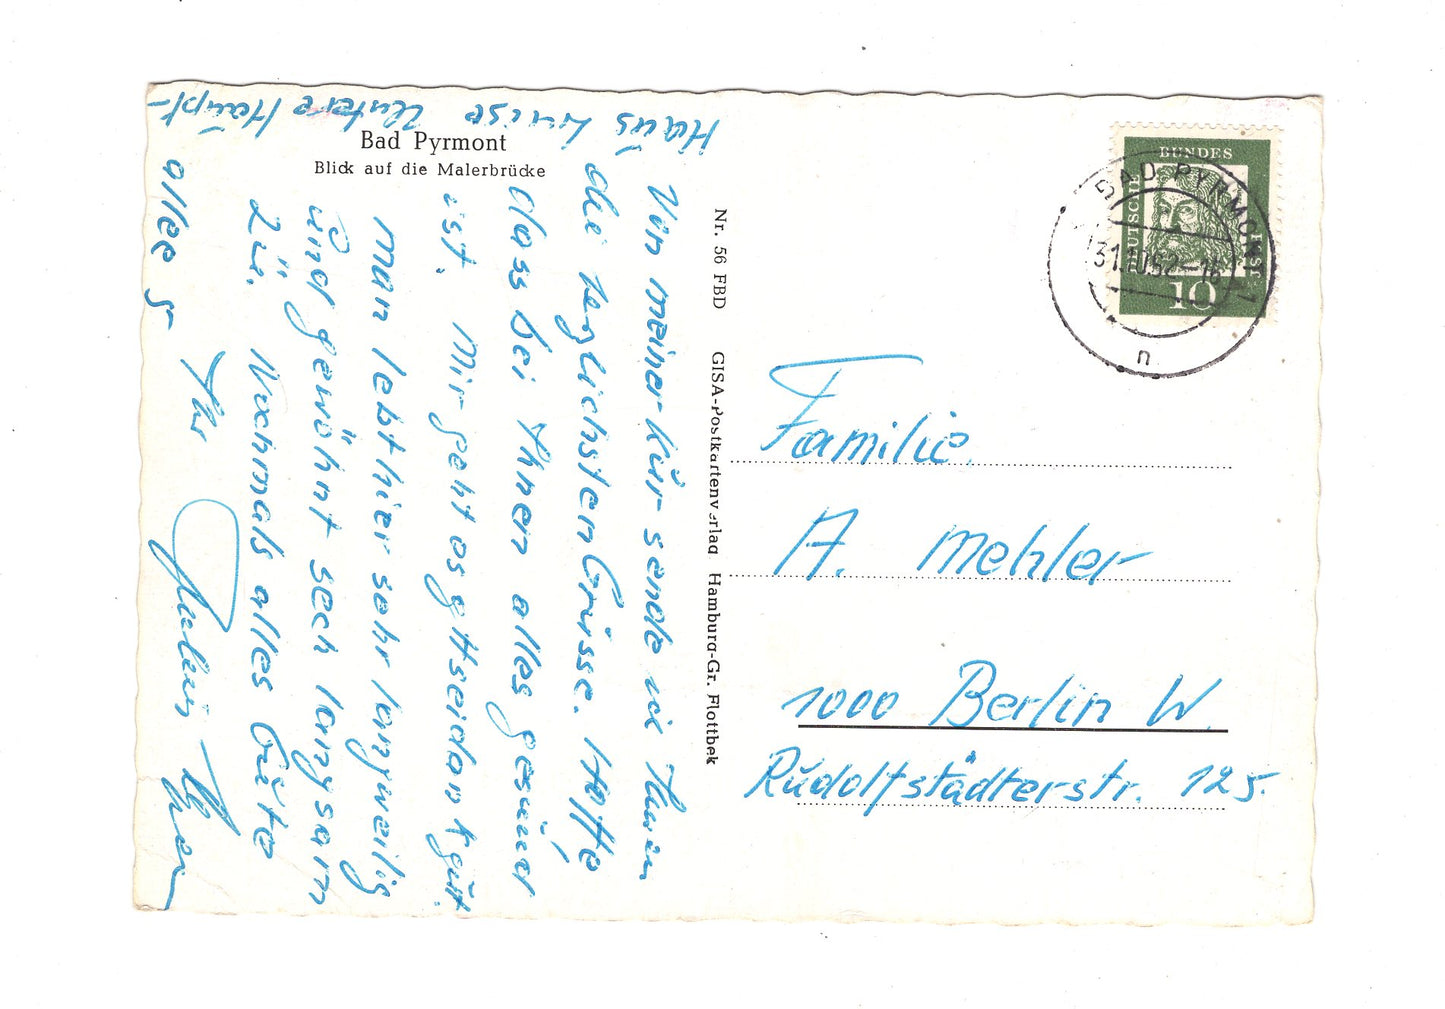 Bad Pyrmont
Blick auf die Malerbrücke
Von meiner Kur sende ich Ihnen
die herzlichsten Grüsse. Hoffe,
dass bei Ihnen alles gesund
ist. Mir geht es gottseidank gut.
man lebt hier sehr langweilig
und gewöhnt sech langsam
zu. Nochmals alles Gute
Ihr
Haus Luise Untere Haupt-
allee 5
Nr. 56 FBD GISA-Postkartenverlag Hamburg-Gr. Flottbek
DEUTSCHE
BUNDES
POST
10
BAD PYRMONT
31.10.62-16
n
Familie
A. Mehler
1000 Berlin W.
Rudolfstädterstr. 125.